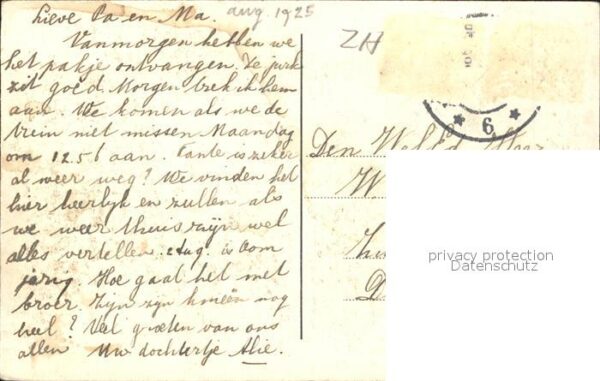 Lieve Pa en Ma. aug. 1925
Vanmorgen hebben we
het pakje ontvangen. De jurk
zit goed Morgen trek ik hem
aan. We komen als we de
trein niet missen Maandag
om 12.51 aan. Tante is zeker
al weer weg? We vinden het
hier heerlijk en zullen als
we weer thuis zijn wel
alles vertellen. is Oom
jarig. Hoe gaat het met
broer. Zijn zijn knieën nog
heel? Veel groeten van ons
allen Uw dochtertje Alie.
ZH
6
Den
W
D
privacy protection
Datenschutz